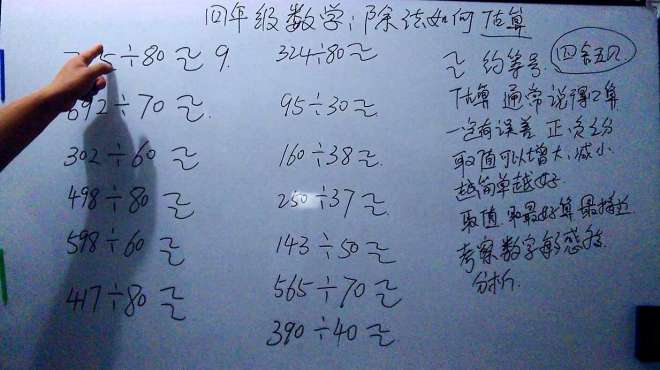 四年级数学:除法如何估算
5÷80≈9.
692÷70≈
302÷60≈
498÷80≈
598÷60≈
417÷80≈
324÷80≈
95÷30≈
160÷38≈
250÷37≈
143÷50≈
565÷70≈
390÷40≈
≈ 约等号. 四舍五入
估算 通常说得口算
一定有误差 正负之分
取值可以增大、减小
越简单越好.
取值 最好算 最接近.
考察数字敏感
分析.